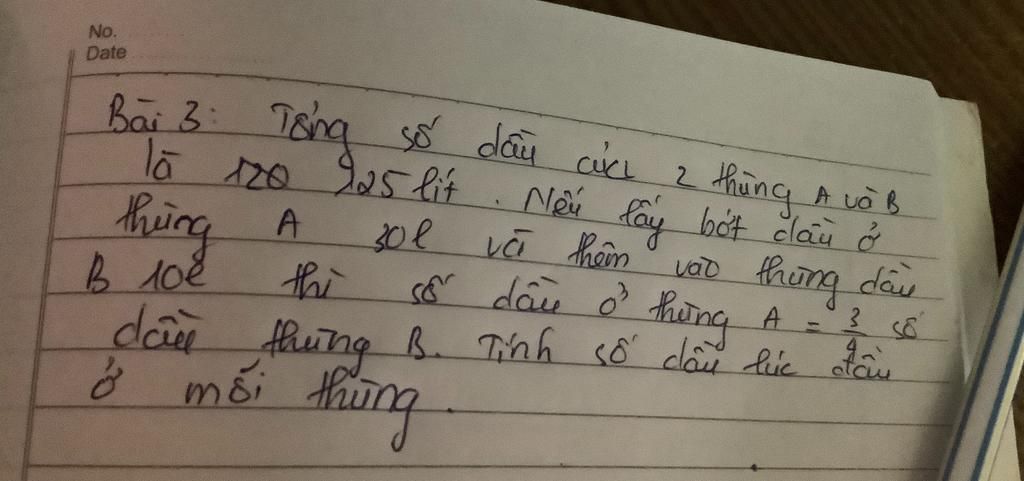 No.
Date
Bài 3: Tổng số dầu của 2 thùng A và B
là 120 125 lít. Nếu lấy bớt dầu ở
thùng A 30l và thêm vào thùng dầu
B 10l thì số dầu ở thùng A = 3/4 số
dầu thùng B. Tính số dầu lúc đầu
ở mỗi thùng.